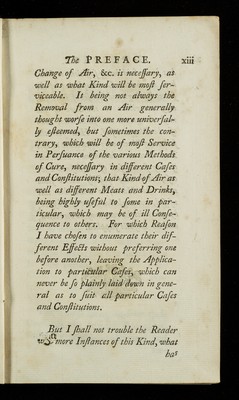 The PREFACE. xiii
Change of Air, &c. is necessary, as
well as what Kind will be most ser-
viceable. It being not always the
Removal from an Air generally
thought worse into one more universal-
ly esteemed, but sometimes the con-
trary, which will be of most Service
in Persuance of the various Methods
of Cure, necessary in different Cases
and Constitutions; that Kind of Air as
well as different Meats and Drinks,
being highly useful to some in par-
ticular, which may be of ill Conse-
quence to others. For which Reason
I have chosen to enumerate their dif-
ferent Effects without preferring one
before another, leaving the Applica-
tion to particular Cases, which can
never be so plainly laid down in gene-
ral as to suit all particular Cases
and Constitutions.
But I shall not trouble the Reader
more Instances of this Kind, what
has